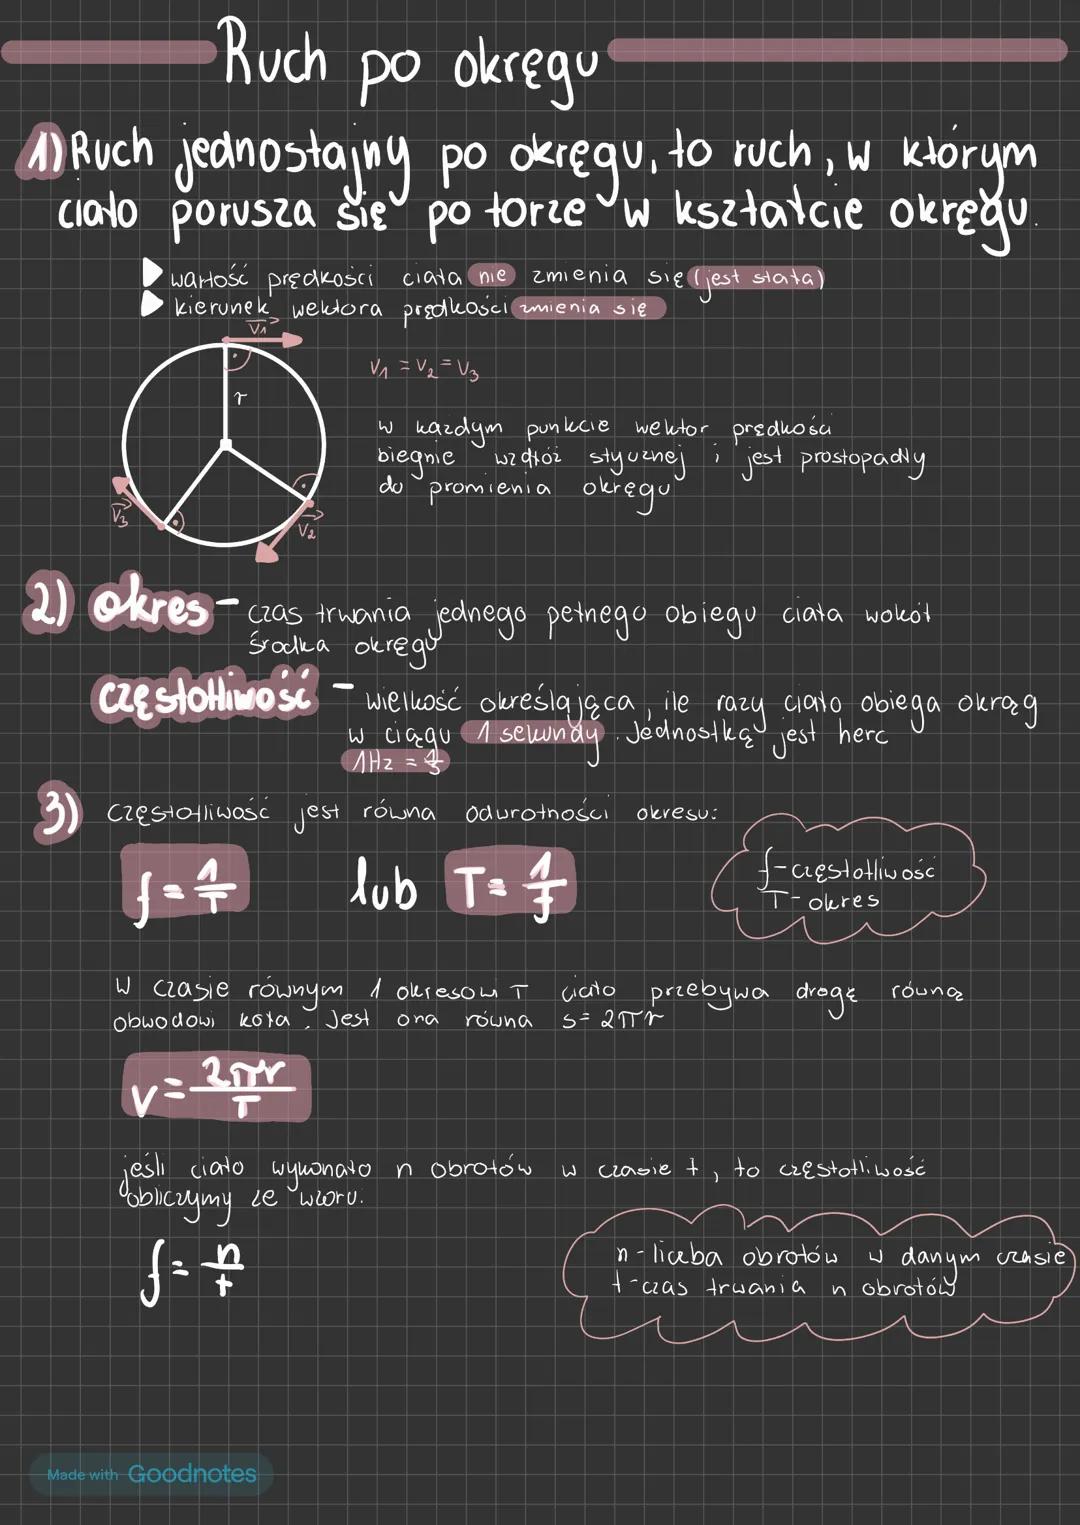 Ruch po okręgu
1) Ruch jednostajny po okręgu, to ruch, w którym
ciało porusza się po torze w kształcie okręgu.
wartość prędkości ciała nie zmienia się (jest stała)
kierunek wektora prędkości zmienia się
V₁
V₁ = V₂ = V₃
r
w każdym punkcie wektor prędkości
biegnie wzdłóż stycznej i jest prostopadły
do promienia okręgu
V₃
V₂
2) okres - czas trwania jednego pełnego obiegu ciała wokół
środka okręgu
częstotliwość - wielkość określająca, ile razy ciało obiega okrąg
w ciągu 1 sekundy. Jednostką jest herc
1Hz = 1/s
3) częstotliwość jest równa odwrotności okresu:
f = 1/T lub T = 1/f
f - częstotliwość
T - okres
W czasie równym 1 okresowi T ciało przebywa drogę równą
obwodowi koła. Jest ona równa s = 2πr
v = 2πr/T
jeśli ciało wykonało n obrotów w czasie t, to częstotliwość
obliczymy ze wzoru.
f = n/t
n - liczba obrotów w danym czasie
t - czas trwania n obrotów
Made with Goodnotes